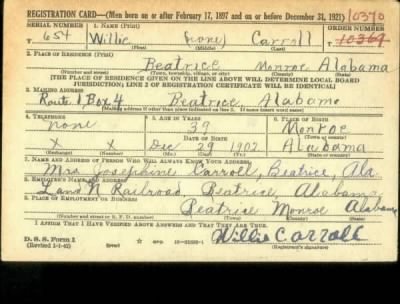 REGISTRATION CARD—(Men born on or after February 17, 1897 and on or before December 31, 1921) 10370
SERIAL NUMBER 1. NAME (Print) ORDER NUMBER
T 654 Willie (none) Carroll 10369
(First) (Middle) (Last)
2. PLACE OF RESIDENCE (Print)
Beatrice Monroe Alabama
(Number and street) (Town, township, village, or city) (County) (State)
[THE PLACE OF RESIDENCE GIVEN ON THE LINE ABOVE WILL DETERMINE LOCAL BOARD
JURISDICTION; LINE 2 OF REGISTRATION CERTIFICATE WILL BE IDENTICAL]
3. MAILING ADDRESS
Route 1, Box 4 Beatrice, Alabama
[Mailing address if other than place indicated on line 2. If same insert word same]
4. TELEPHONE 5. AGE IN YEARS 6. PLACE OF BIRTH
none 39 Monroe
DATE OF BIRTH (Town or county)
x x Dec 29 1902 Alabama
(Exchange) (Number) (Mo.) (Day) (Yr.) (State or country)
7. NAME AND ADDRESS OF PERSON WHO WILL ALWAYS KNOW YOUR ADDRESS
Mrs Josephine Carroll, Beatrice, Ala.
8. EMPLOYER'S NAME AND ADDRESS
L and N Railroad, Beatrice, Alabama
9. PLACE OF EMPLOYMENT OR BUSINESS
Beatrice Monroe Alabama
(Number and street or R. F. D. number) (Town) (County) (State)
I AFFIRM THAT I HAVE VERIFIED ABOVE ANSWERS AND THAT THEY ARE TRUE.
D. S. S. Form 1 Willie Carroll
(Revised 1-1-42) (over) (Registrant's signature)